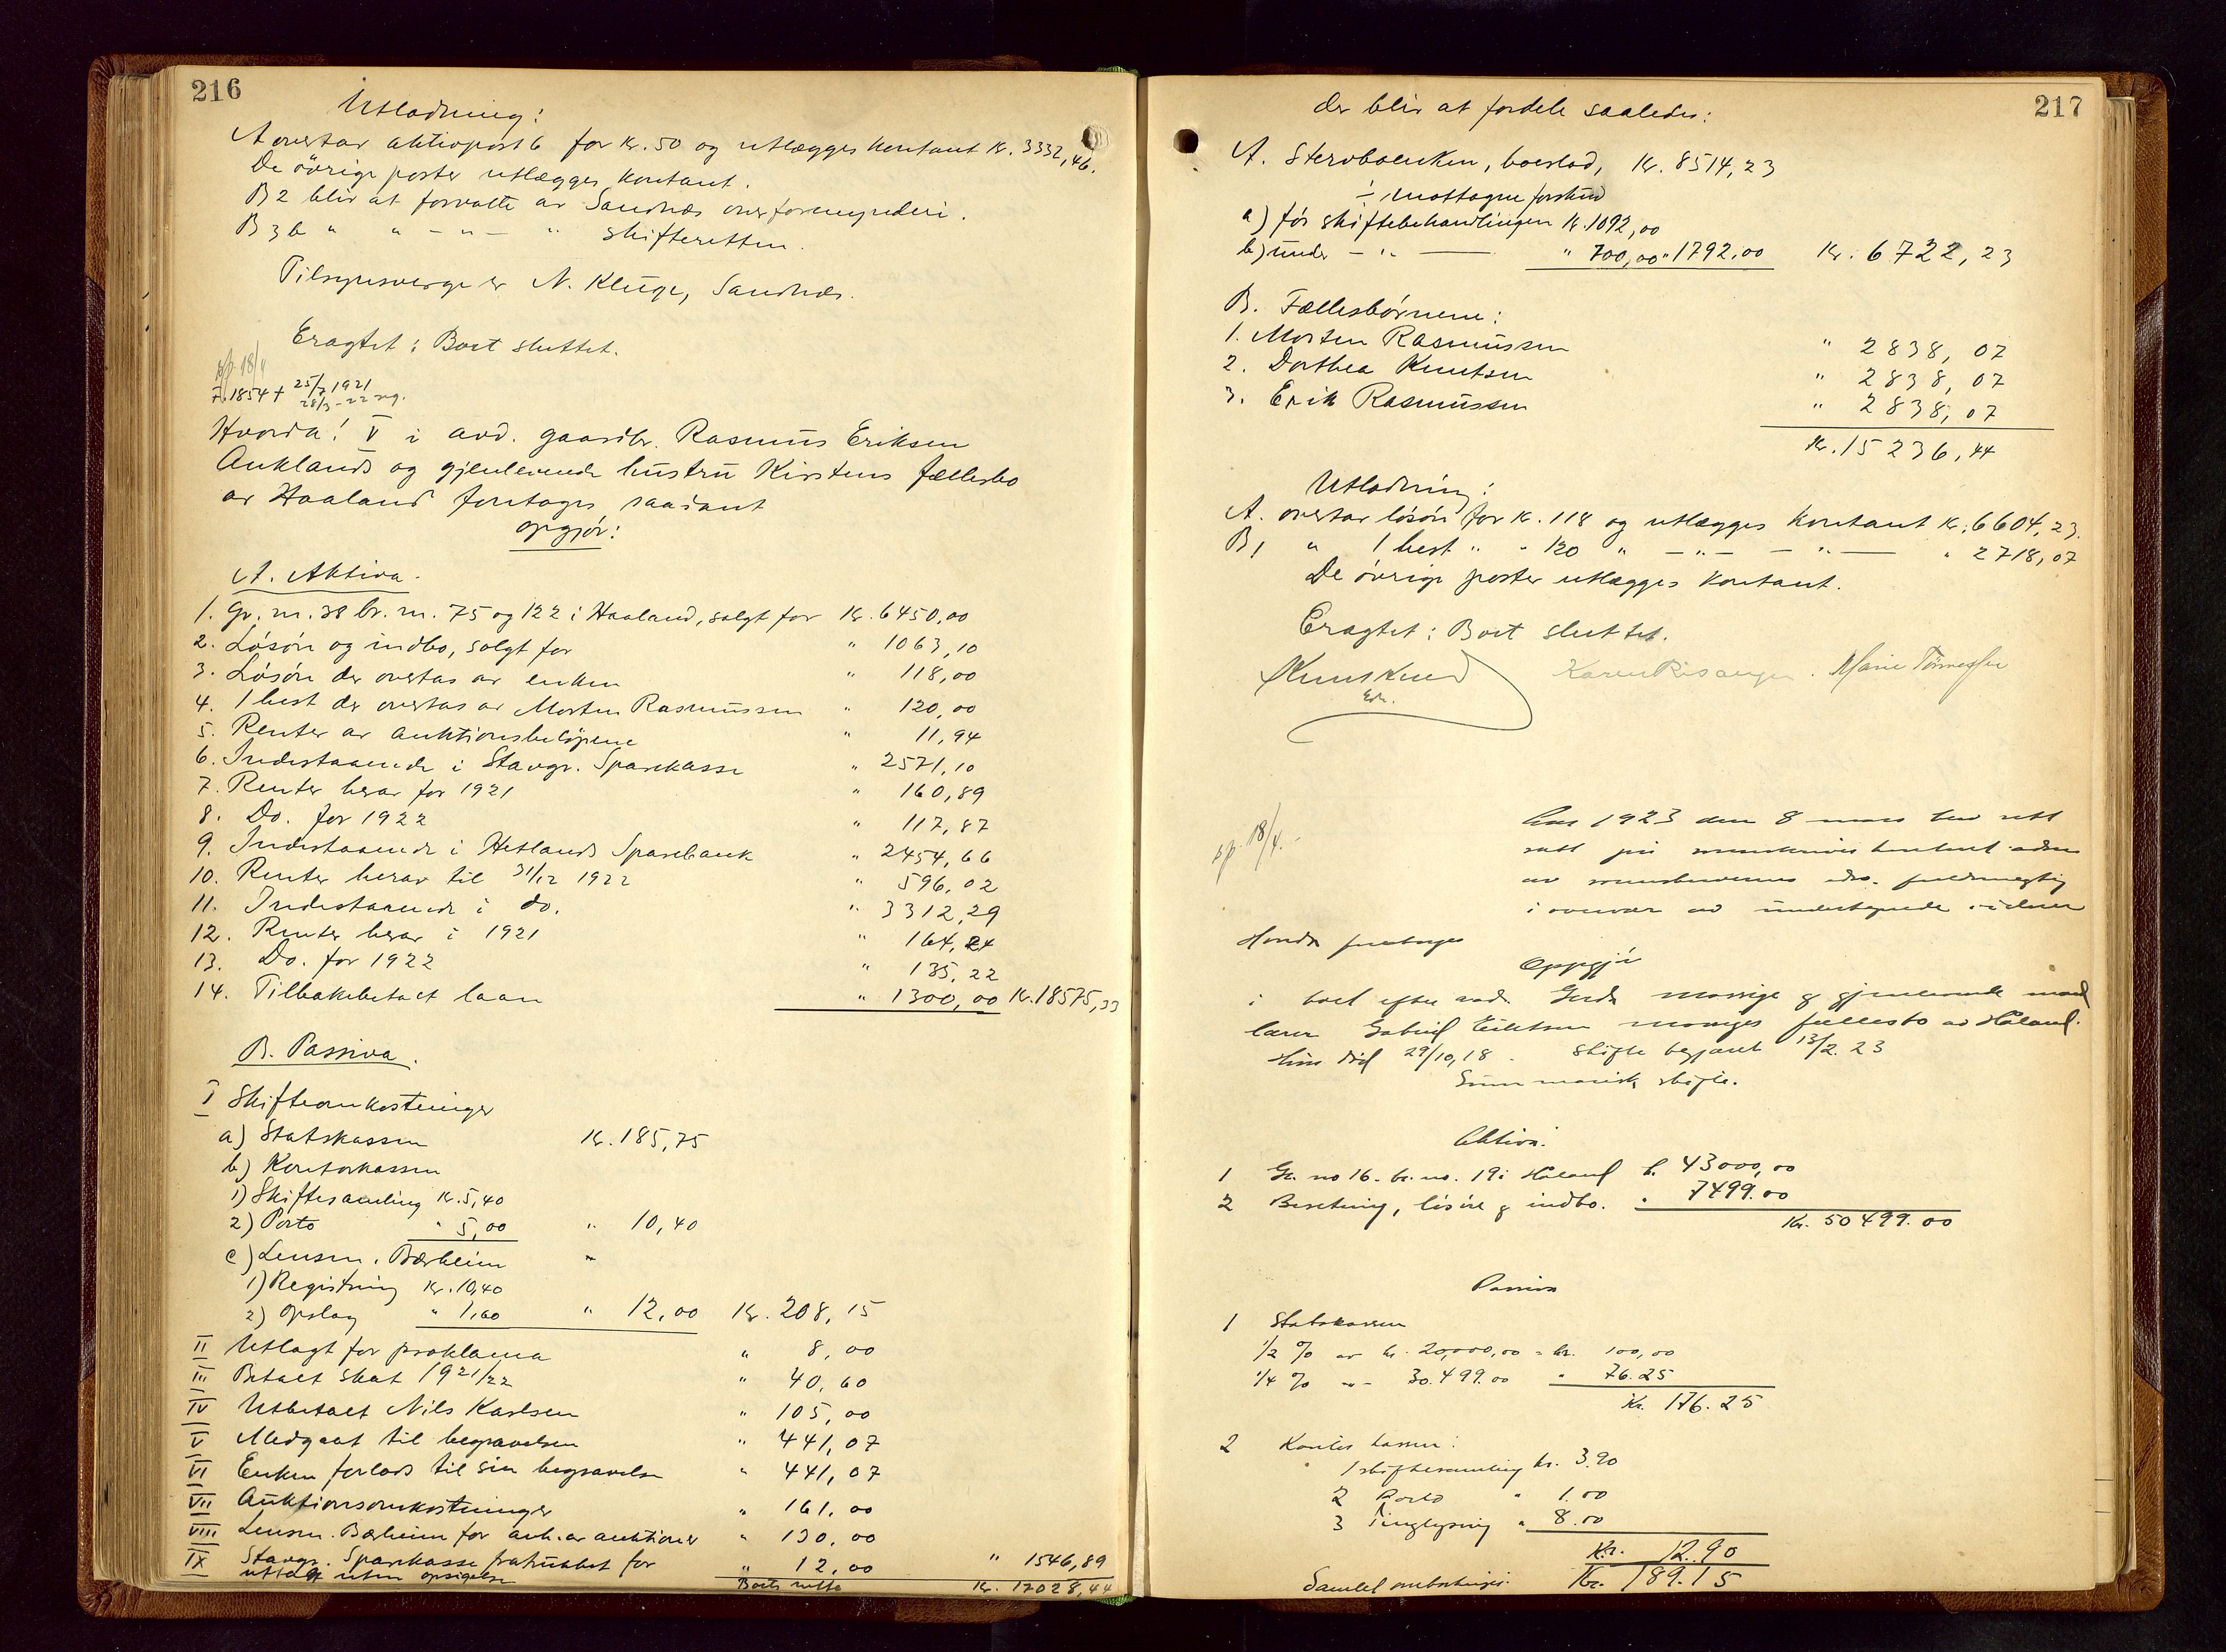 216
Utlodning:
A overtar aktiepost 6 for kr. 50 og utlægges kontant kr. 3332,46.
De övrige poster utlægges kontant.
B 2 blir at forvalte av Sandnes overformynderi.
B 3 b " " - " - " skifteretten.
Tilsynsverge er N. Kluge, Sandnes.
Eragtet: Boet sluttet.
sp. 18/4
f. 1854 † 25/7 1921
28/3 - 22 reg.
Hvorda! V i avd. gaardbr. Rasmus Eriksen
Auklands og gjenlevende hustru Kirstens fællesbo
av Haaland foretages saadant
opgjör:
A. Aktiva.
1. Gr. nr. 38 br. nr. 75 og 122 i Haaland, solgt for kr. 6450,00
2. Lösöre og indbo, solgt for " 1063,10
3. Lösöre der overtas av enken " 118,00
4. 1 hest der overtas av Morten Rasmussen " 120,00
5. Renter av auktionsbelöpene " 11,94
6. Indestaaende i Stavgr. Sparekasse " 2571,10
7. Renter herav for 1921 " 160,89
8. Do. for 1922 " 117,87
9. Indestaaende i Hetlands Sparebank " 2454,66
10. Renter herav til 31/12 1922 " 596,02
11. Indestaaende i do. " 3312,29
12. Renter herav i 1921 " 164,24
13. Do. for 1922 " 135,22
14. Tilbakebetalt laan " 1300,00 Kr. 18575,33
B. Passiva.
I Skifteomkostninger
a) Statskassen Kr. 185,75
b) Kontorkassen
1) Skiftesamling Kr. 5,40
2) Porto " 5,00 " 10,40
c) Lensm. Bærheim
1) Registrering Kr. 10,40
2) Opslag " 1,60 " 12,00 Kr. 208,15
II Utlagt for proklama " 8,00
III Betalt skat 1921/22 " 40,60
IV Utbetalt Nils Karlsen " 105,00
V Medgaat til begravelsen " 441,07
VI Enken forlods til sin begravelse " 441,07
VII Auktionsomkostninger " 161,00
VIII Lensm. Bærheim for avh. av auktioner " 130,00
IX Stavgr. Sparekasse fratrukket for
uttag uten opsigelse " 12,00 " 1546,89
Boets netto Kr. 17028,44
217
der blir at fordele saaledes:
A. Stervboenken, boeslod, Kr. 8514,23
÷ mottagne forskud
a) för skiftebehandlingen Kr. 1092,00
b) under - " - " 700,00 " 1792,00 Kr. 6722,23
B. Fællesbörnene:
1. Morten Rasmussen " 2838,07
2. Dorthea Knutsen " 2838,07
3. Erik Rasmussen " 2838,07
Kr. 15236,44
Utlodning:
A. overtar lösöre for kr. 118 og utlægges kontant kr. 6604,23.
B 1 " 1 hest " " 120 " - " - - " - " 2718,07
De övrige poster utlægges kontant.
Eragtet: Boet sluttet.
Edv. Karen Risanger. Marie Tönnessen
sp. 18/4.
Aar 1923 den 8 mars blev rett
satt på sorenskriver kontoret
av sorenskriverens edsv. fuldmægtig
i overvær av undertegnede vidner
Hvorda foretoges
Oppgjör
i boet efter avd. Gerda Mossige og gjenlevende mand
lærer Gabriel Mossiges fællesbo av Håland.
Hun död 29/10, 18. Skifte begjæret 13/2. 23
Summarisk skifte.
Aktiva.
1 Gr. no 16. br. no. 19 i Håland kr. 43000,00
2 Besetning, lösöre og indbo. " 7499.00
Kr. 50499.00
Passiva
1 Statskassen
1/2 % av kr. 20,000,00 = kr. 100,00
1/4 % - " - 30.499.00 " 76.25
Kr. 176.25
2 Kontorkassen:
1 skiftesamling kr. 3.90
2 Porto " 1.00
3 Tinglysning " 8.00
Kr. 12.90
Samlet omkostninger. Kr. 189.15